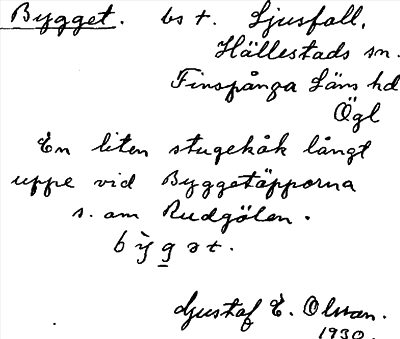 Bygget. bs t. Ljusfall,
Hällestads sn.
Finspånga Läns hd
Ögl
En liten stugekåk långt
uppe vid Byggetäpporna
s. om Rudgölen.
bỳgət.
Gustaf E. Olsson.
1930.